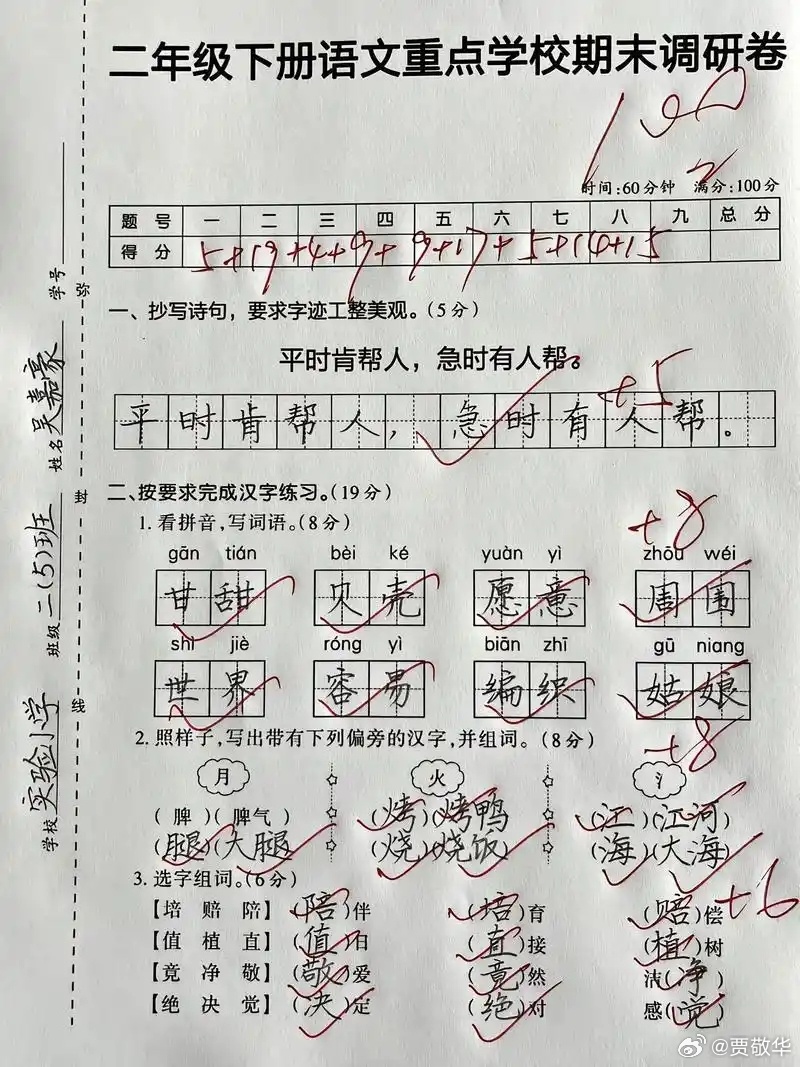 二年级下册语文重点学校期末调研卷
100
时间:60分钟 满分:100分
题号 一 二 三 四 五 六 七 八 九 总分
得分 5+19+4+9+9+17+5+14+15
一、抄写诗句,要求字迹工整美观。(5分)
平时肯帮人,急时有人帮。
+5
平时肯帮人,急时有人帮。
二、按要求完成汉字练习。(19分)
1.看拼音,写词语。(8分) +8
gān tián bèi ké yuàn yì zhōu wéi
甘甜 贝壳 愿意 周围
shì jiè róng yì biān zhī gū niang
世界 容易 编织 姑娘
2.照样子,写出带有下列偏旁的汉字,并组词。(8分) +8
月 火 氵
(脾)(脾气) (烤)(烤鸭) (江)(江河)
(腿)(大腿) (烧)(烧饭) (海)(大海)
3.选字组词。(6分) +6
【培 赔 陪】(陪)伴 (培)育 (赔)偿
【值 植 直】(值)日 (直)接 (植)树
【竟 净 敬】(敬)爱 (竟)然 洁(净)
【绝 决 觉】(决)定 (绝)对 感(觉)
学校 实验小学 班级 二(5)班 姓名 吴嘉豪 学号
弥 封 线
@贾敬华